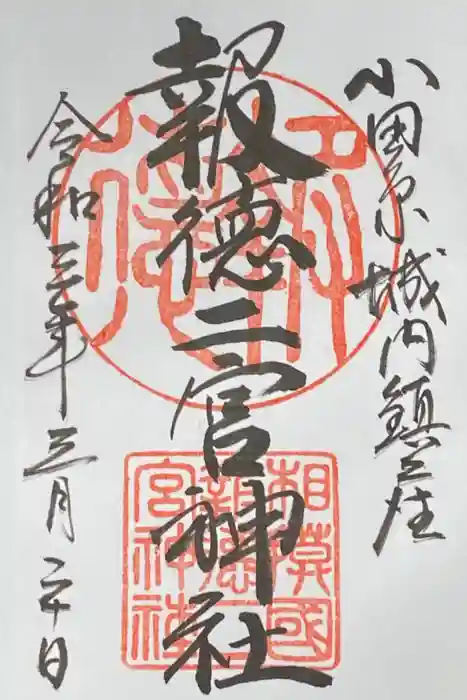 小田原城内鎮座
報徳二宮神社
令和三年三月二十日
相模國
報徳二
宮神社